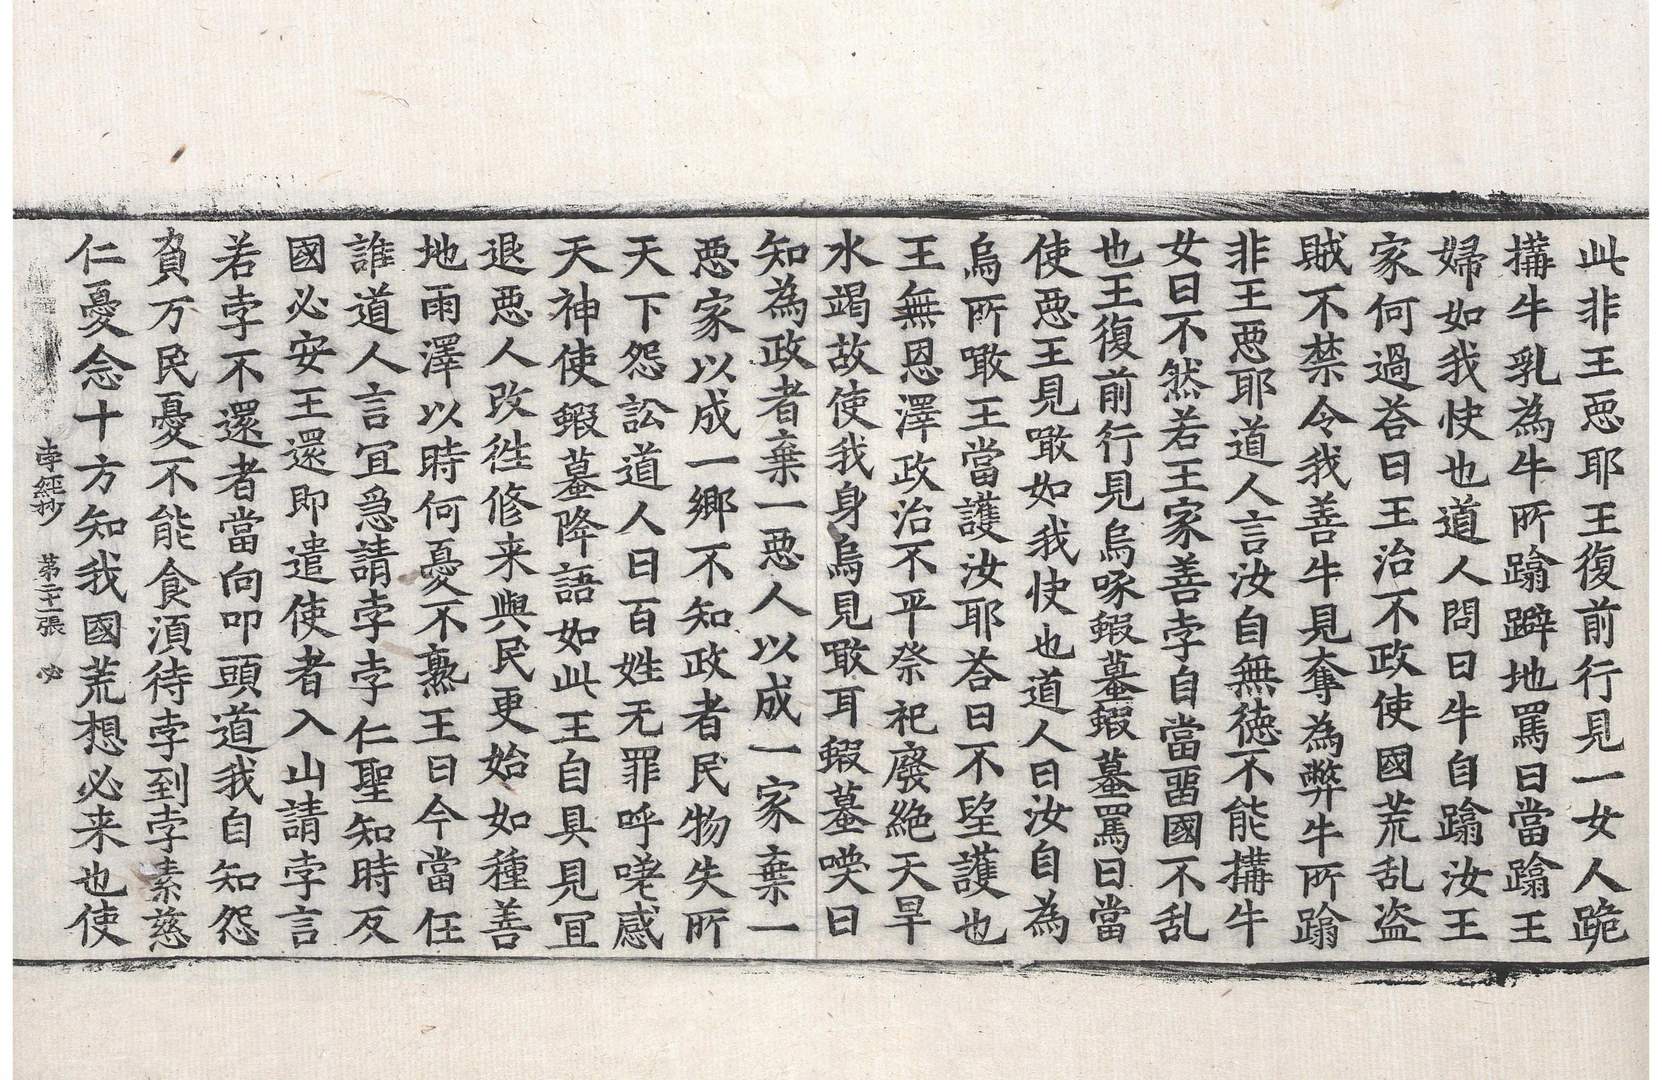 此非王惡耶王復前行見一女人跪
搆牛乳為牛所蹹躃地罵曰當蹹王
婦如我快也道人問曰牛自蹹汝王
家何過荅曰王治不政使國荒乱盗
賊不禁令我善牛見奪為弊牛所蹹
非王惡耶道人言汝自無德不能搆牛
女曰不然若王家善孛自當留國不乱
也王復前行見烏啄蝦蟇蝦蟇罵曰當
使惡王見噉如我快也道人曰汝自為
烏所噉王當護汝耶荅曰不望護也
王無恩澤政治不平祭祀廢絶天旱
水竭故使我身烏見噉耳蝦蟇㗛曰
知為政者棄一惡人以成一家棄一
惡家以成一鄉不知政者民物失所
天下怨訟道人曰百姓无罪呼嗟感
天神使蝦蟇降語如此王自具見冝
退惡人改徃修来與民更始如種善
地雨澤以時何憂不熟王曰今當任
誰道人言冝急請孛孛仁聖知時反
國必安王還即遣使者入山請孛言
若孛不還者當向叩頭道我自知怨
負万民憂不能食湏待孛到孛素慈
仁憂念十方知我國荒想必来也使
孛經抄 第二十二張 必